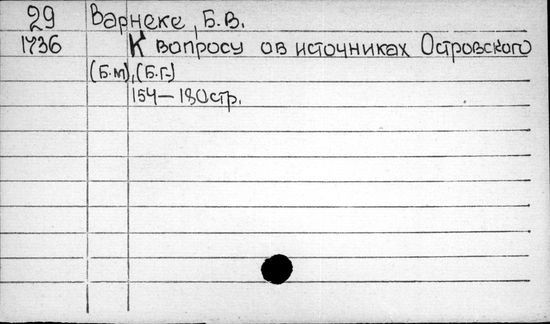 29 Варнеке, Б.В.
1736 К вопросу об источниках Островского
(Б.м), (Б.г.)
154-180стр.